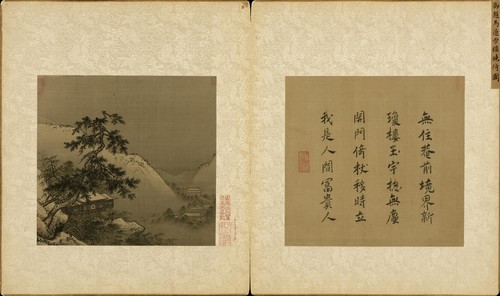 無住菴前境界新
瓊樓玉宇揔無塵
開門倚杖移時立
我是人間富貴人